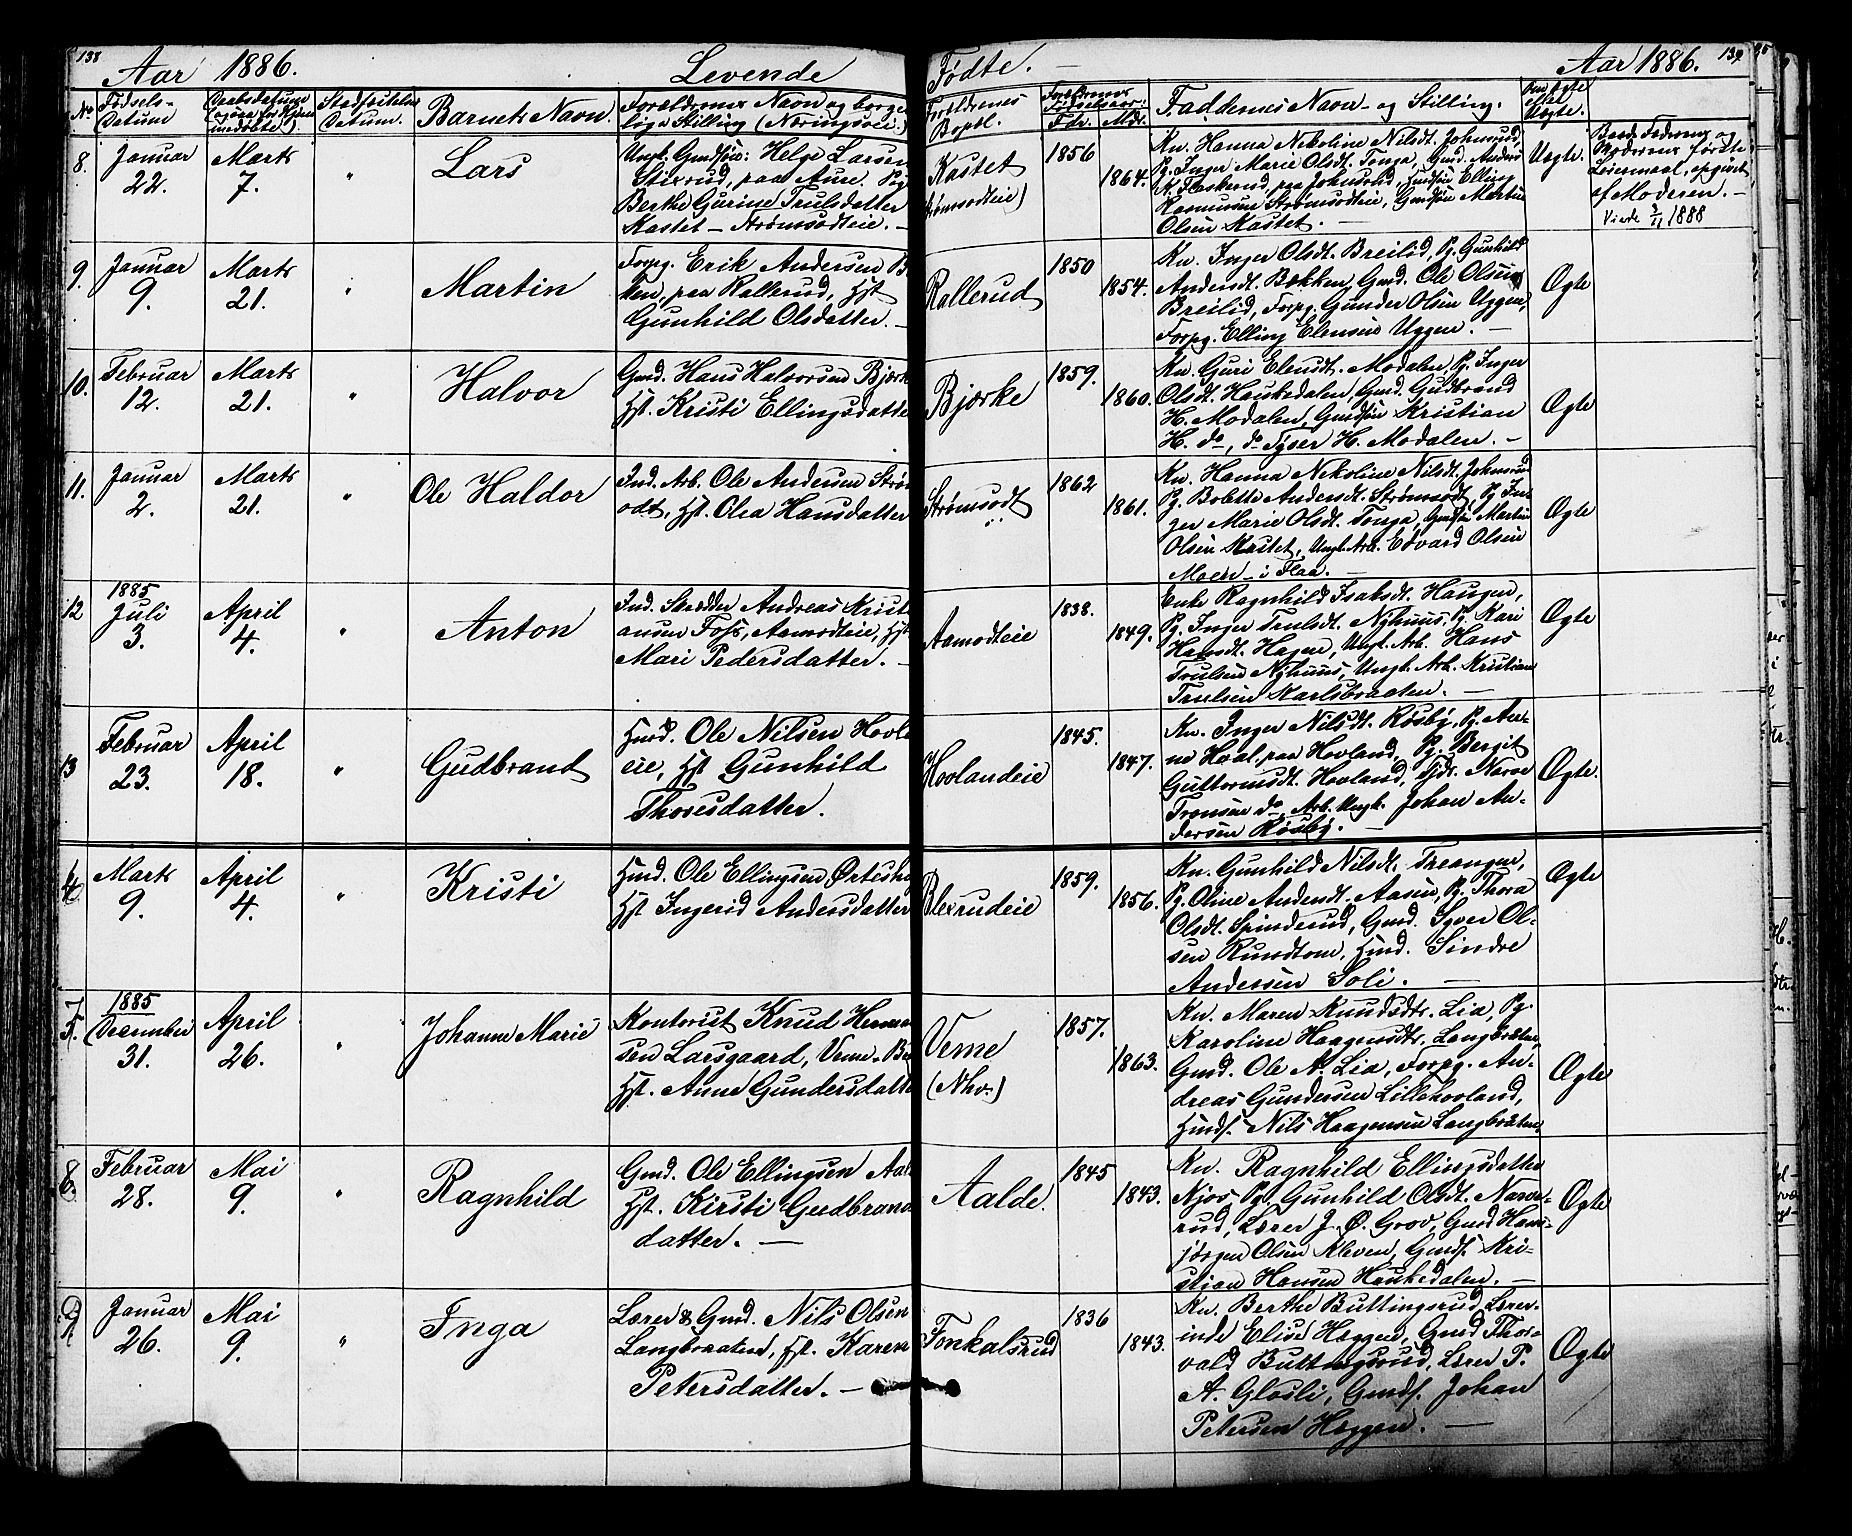 138
Aar 1886.
Levende
Fødte.
Aar 1886.
139
No
Fødsels-
Datum
Daabsdatum
Stadfæstelses
Datum.
Barnets Navn.
Forældrenes Navn og borger-
lige Stilling (Næringsvei.)
Forældrenes
Bopæl.
Forældrenes
Fødselsaar:
Fdr. Mdr.
Faddernes Navn og Stilling.
Om Ægte
eller
Uægte.
8.
Januar
22.
Marts
7.
"
Lars
Ungk. Gmdsøn: Helge Larsen
Stixrud, paa Aure. Pig
Berthe Gurine Trulsdatter
Kastet – Strømsodteie. –
Kastet
Strømsodteie)
1856
1864.
Kn. Hanna Nikoline Nilsdt. Johnsrud,
Pg. Inger Marie Olsdt. Tonga, Gmd. Anders
K. Flaskerud, paa Johnsrud, Husdsøn Elling
Rasmussen Strømsodteie, Gmdsøn Martin
Olsen Kastet. –
Uægte.
Baade Faderens og
Moderens første
Leiermaal, opgivet
af Moderen. –
Viede 2/11 1888
9.
Januar
9.
Marts
21.
"
Martin
Forpg. Erik Andersen B
ken, paa Rallerud, Hst
Gunhild Olsdatter. –
Rallerud
1850
1854.
Kn. Inger Olsdt. Breilid, Pg. Gunhild
Andersdt. Bakken, Gmd. Ole Olsen
Breilid, Forpg. Gunder Olsen Uggen,
Forpg. Elling Elensen Uggen. –
Ægte
10.
Februar
12.
Marts
21.
"
Halvor
Gmd. Hans Halvorsen Bjørke
Hst. Kristi Ellingsdatte
Bjørke
1859.
1860.
Kn. Guri Elensdt. Modalen, Pg. Inger
Olsdt. Haukedalen, Gmd. Gudbrand
H. Modalen, Gmdsøn Kristian
H. do, do Syver H. Modalen. –
Ægte
11.
Januar
2.
Marts
21.
"
Ole Haldor
Ind. Arb. Ole Andersen Strøm
odt, Hst. Olea Hansdatter
Strømsodt
1862
1861.
Kn. Hanna Nikoline Nilsdt. Johnsrud
Pg. Bolette Andersdt. Strømsodt, Pg. In-
ger Marie Olsdt. Tonga, Gmdsøn Martin
Olsen Kastet, Ungk. Arb. Edvard Olsen
Moen – i Flaa. –
Ægte
12
1885
Juli
3.
April
4.
"
Anton
Ind. Skræder Andreas Krist
ansen Foss, Aamodteie, Hst
Mari Pedersdatter. –
Aamodteie
1838.
1849.
Enke Ragnhild Isaksdt. Haugen,
Pg. Inger Trulsdt. Nyhuus, Pg. Kari
Hansdt. Hagen, Ungk. Arb. Hans
Trulsen Nyhuus, Ungk. Arb. Kristian
Trulsen Karlsbraaten. –
Ægte
13
Februar
23.
April
18.
"
Gudbrand
Husd. Ole Nilsen Hovla
eie, Hst Gunhild
Thoresdatter.
Hovlandeie
1845.
1847.
Kn. Inger Nilsdt. Røsby, Pg. An-
ne Hoal, paa Hovland, Pg. Bergit
Guttormsdt. Hovland, Gdr. Narve
Tronsen do, Arb. Ungk. Johan An-
dersen Røsby. –
Ægte.
4
Marts
9.
April
4.
"
Kristi
Husd. Ole Ellingsen Ørteshu
Hst Ingerid Andersdatter
Blexrudeie
1859.
1856.
Kn. Gunhild Nilsdt. Treangen,
Pg. Oline Andersdt. Aasen, Pg. Thora
Olsdt. Spinderud, Gmd. Syver Ol-
sen Rundtom, Husd. Sindre
Andersen Soli. –
Ægte
5.
1885
December
31.
April
26.
"
Johanne Marie
Kontorist Knud Herman
sen Larsgaard, Veme – B
Hst. Anne Gundersdatte
Veme
(Nhv.)
1857.
1863.
Kn. Maren Knudsdtr. Lia, Pg.
Karoline Haagensdtr. Langbraaten,
Gmd. Ole A. Lia, Forpg. An-
dreas Gundersen Lillehovland,
Husds. Nils Haagensen Langbraaten
Ægte
8.
Februar
28.
Mai
9.
"
Ragnhild
Gmd. Ole Ellingsen Aal
Hst. Kirsti Gudbrands
datter. –
Aalde.
1845
1843.
Kn. Ragnhild Ellingsdatter
Njos, Pg. Gunhild Olsdt. Narve-
rud, Lærer J. Ø. Grov, Gmd Hans
Jørgen Olsen Kleven, Gmds. Kri-
stian Hansen Haukedalen. –
Ægte
9.
Januar
26.
Mai
9.
"
Inga
Lærer & Gmd. Nils Olsen
Langbraaten, Hst. Karen
Petersdatter. –
Fonkalsrud
1836
1843.
Kn. Berthe Buttingsrud, Lærer-
inde Elise Hæggen, Gmd Thor-
vald Buttingsrud, Lærer P.
A. Gløsli, Gmds. Johan
Petersen Hæggen. –
Ægte